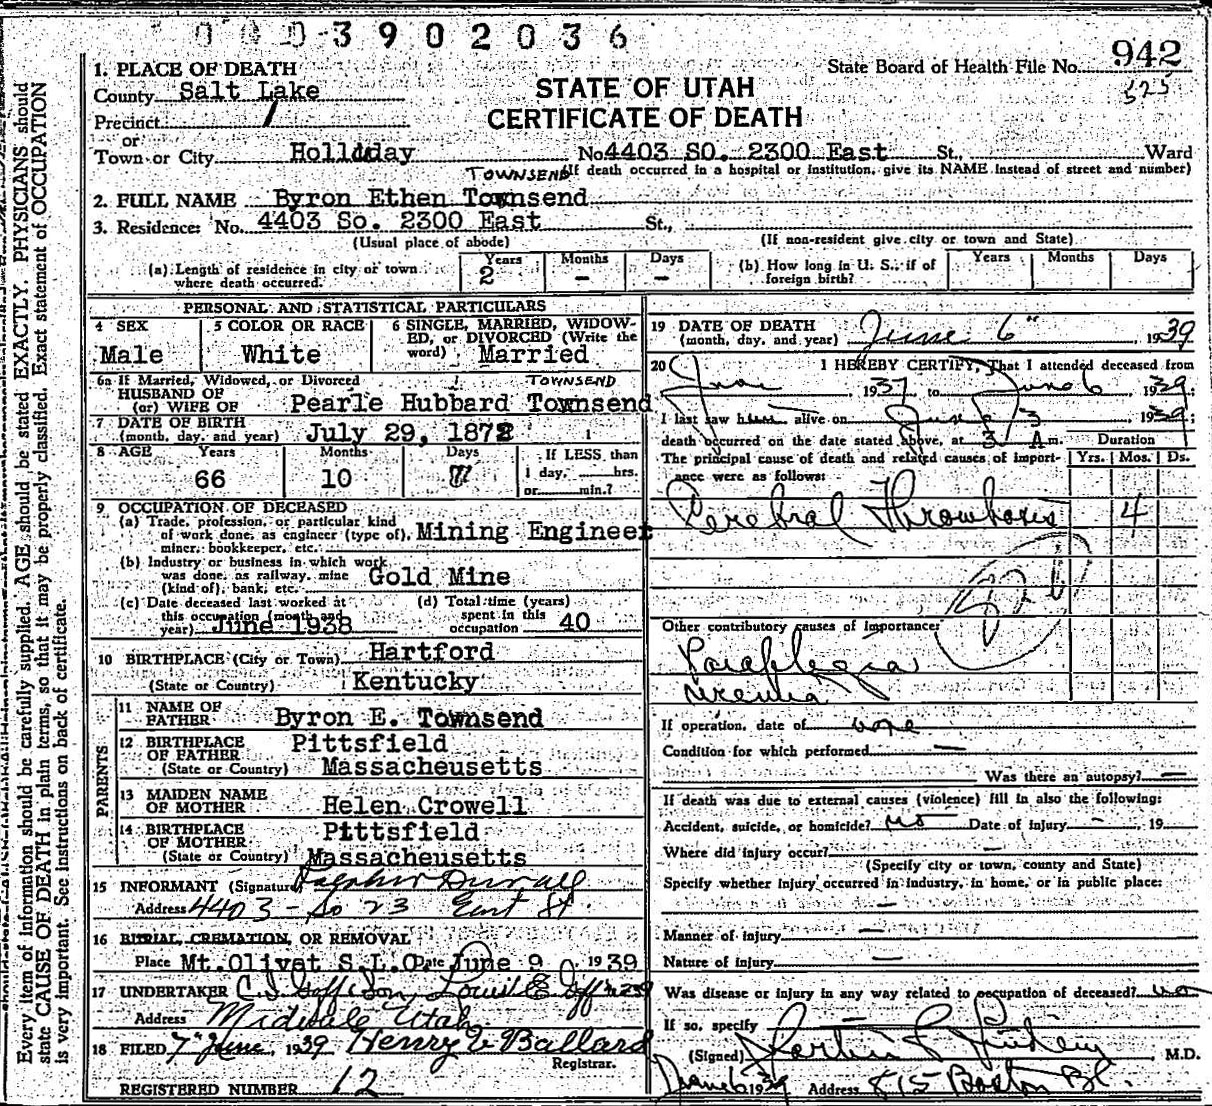 0003902036
State Board of Health File No. 942
525
STATE OF UTAH
CERTIFICATE OF DEATH
1. PLACE OF DEATH
County Salt Lake
Precinct 1
or
Town or City Holladay No. 4403 SO. 2300 East St., Ward
(If death occurred in a hospital or institution, give its NAME instead of street and number)
TOWNSEND
2. FULL NAME Byron Ethen Townsend
3. Residence: No. 4403 So. 2300 East St.,
(Usual place of abode) (If non-resident give city or town and State)
(a) Length of residence in city or town where death occurred. Years 2 Months - Days -
(b) How long in U. S., if of foreign birth? Years Months Days
PERSONAL AND STATISTICAL PARTICULARS
4 SEX Male
5 COLOR OR RACE White
6 SINGLE, MARRIED, WIDOWED, or DIVORCED (Write the word) Married
6a If Married, Widowed, or Divorced
HUSBAND OF
(or) WIFE OF Pearle Hubbard Townsend
TOWNSEND
7 DATE OF BIRTH
(month, day, and year) July 29, 1872
8 AGE Years 66 Months 10 Days 7 If LESS than 1 day, hrs. or min.?
9 OCCUPATION OF DECEASED
(a) Trade, profession, or particular kind of work done, as engineer (type of), miner, bookkeeper, etc. Mining Engineer
(b) Industry or business in which work was done, as railway, mine (kind of), bank, etc. Gold Mine
(c) Date deceased last worked at this occupation (month and year) June 1938
(d) Total time (years) spent in this occupation 40
10 BIRTHPLACE (City or Town) Hartford
(State or Country) Kentucky
PARENTS
11 NAME OF FATHER Byron E. Townsend
12 BIRTHPLACE OF FATHER Pittsfield
(State or Country) Massacheusetts
13 MAIDEN NAME OF MOTHER Helen Crowell
14 BIRTHPLACE OF MOTHER Pittsfield
(State or Country) Massacheusetts
15 INFORMANT (Signature) Duvall
Address 4403 - So 23 East St.
16 BURIAL, CREMATION, OR REMOVAL
Place Mt. Olivet S.L.C. Date June 9, 1939
17 UNDERTAKER
Address Midvale Utah
18 FILED 7" June, 1939 Henry Ballard
Registrar.
REGISTERED NUMBER 12
19 DATE OF DEATH
(month, day, and year) June 6", 1939
20 I HEREBY CERTIFY, That I attended deceased from
1937 to June 6 1939;
I last saw him alive on June 3 1939;
death occurred on the date stated above, at 3 A m.
The principal cause of death and related causes of importance were as follows:
Duration
Yrs. Mos. Ds.
Cerebral Thrombosis 4
Other contributory causes of importance:
Paraplegia
Uremia
If operation, date of none
Condition for which performed —
Was there an autopsy? —
If death was due to external causes (violence) fill in also the following:
Accident, suicide, or homicide? no Date of injury -, 19
Where did injury occur? —
(Specify city or town, county and State)
Specify whether injury occurred in industry, in home, or in public place:
—
Manner of injury —
Nature of injury —
Was disease or injury in any way related to occupation of deceased? no
If so, specify
(Signed) Martin C. Lindem M.D.
June 6 1939 Address 815 Boston Bl.
Every item of information should be carefully supplied. AGE should be stated EXACTLY. PHYSICIANS should
state CAUSE OF DEATH in plain terms, so that it may be properly classified. Exact statement of OCCUPATION
is very important. See instructions on back of certificate.